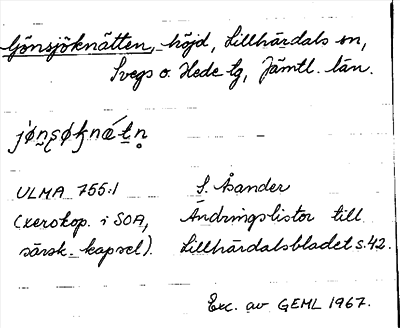 Gönsjöknätten, höjd, Lillhärdals sn,
Svegs o. Hede tg, Jämtl. län.
ULMA 755:1 S. Åsander
(xerokop. i SOA, Ändringslistor till
särsk. kapsel). Lillhärdalsbladet s.42.
Exc. av GEML 1967.